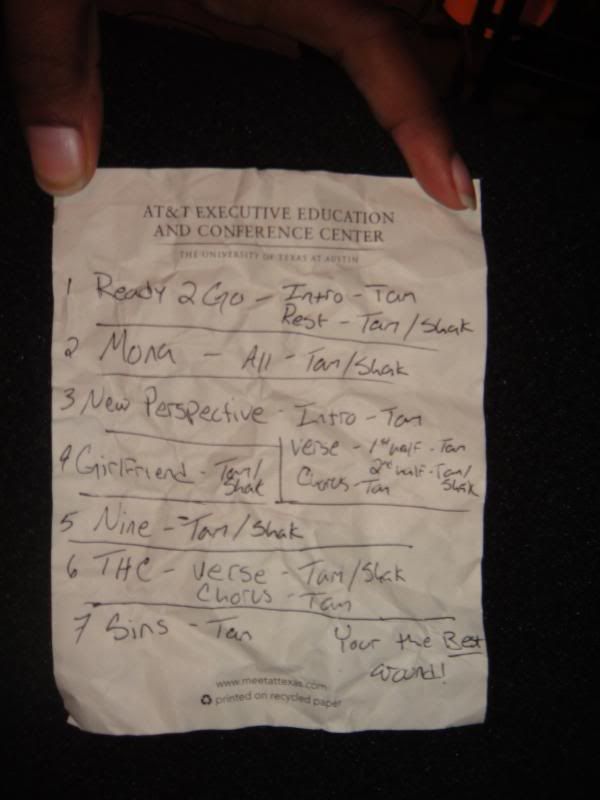 AT&T EXECUTIVE EDUCATION
AND CONFERENCE CENTER
THE UNIVERSITY OF TEXAS AT AUSTIN
1 Ready 2 Go - Intro - Tan
Rest - Tan/Shak
2 Mona - All - Tan/Shak
3 New Perspective - Intro - Tan
Verse - 1st half - Tan
2nd half - Tan/Shak
Chorus - Tan
4 Girlfriend - Tan/Shak
5 Nine - Tan/Shak
6 THC - Verse - Tan/Shak
Chorus - Tan
7 Sins - Tan
Your the Best
around!
www.meetattexas.com
printed on recycled paper